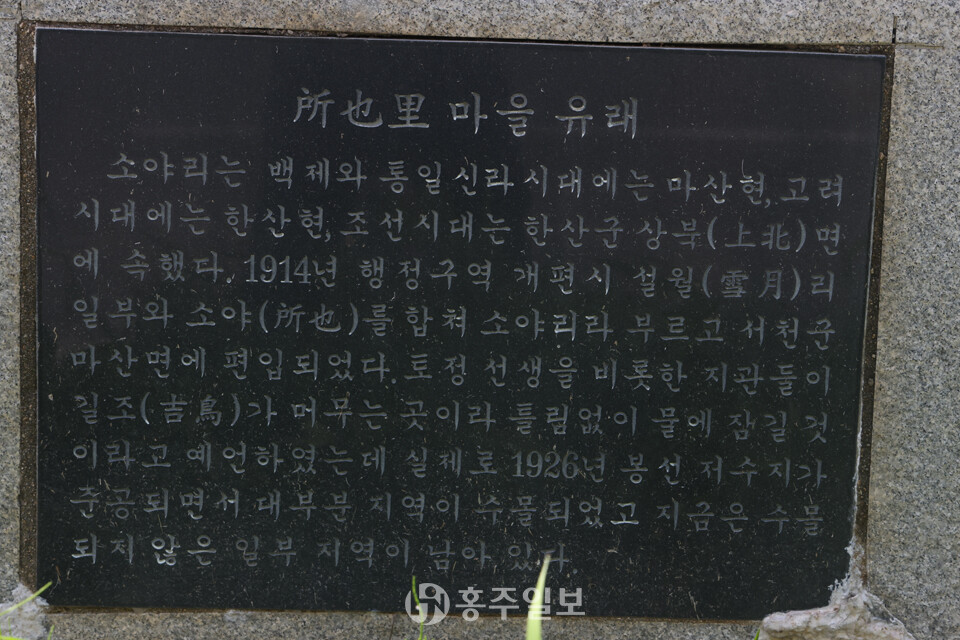 所也里 마을 유래
소야리는 백제와 통일신라시대에는 마산현, 고려
시대에는 한산현, 조선시대는 한산군 상북(上北)면
에 속했다. 1914년 행정구역 개편시 설월(雪月)리
일부와 소야(所也)를 합쳐 소야리라 부르고 서천군
마산면에 편입되었다. 토정 선생을 비롯한 지관들이
길조(吉鳥)가 머무는 곳이라 틀림없이 물에 잠길 것
이라고 예언하였는데 실제로 1926년 봉선 저수지가
준공되면서 대부분 지역이 수몰되었고 지금은 수몰
되지 않은 일부 지역이 남아 있다.
홍주일보